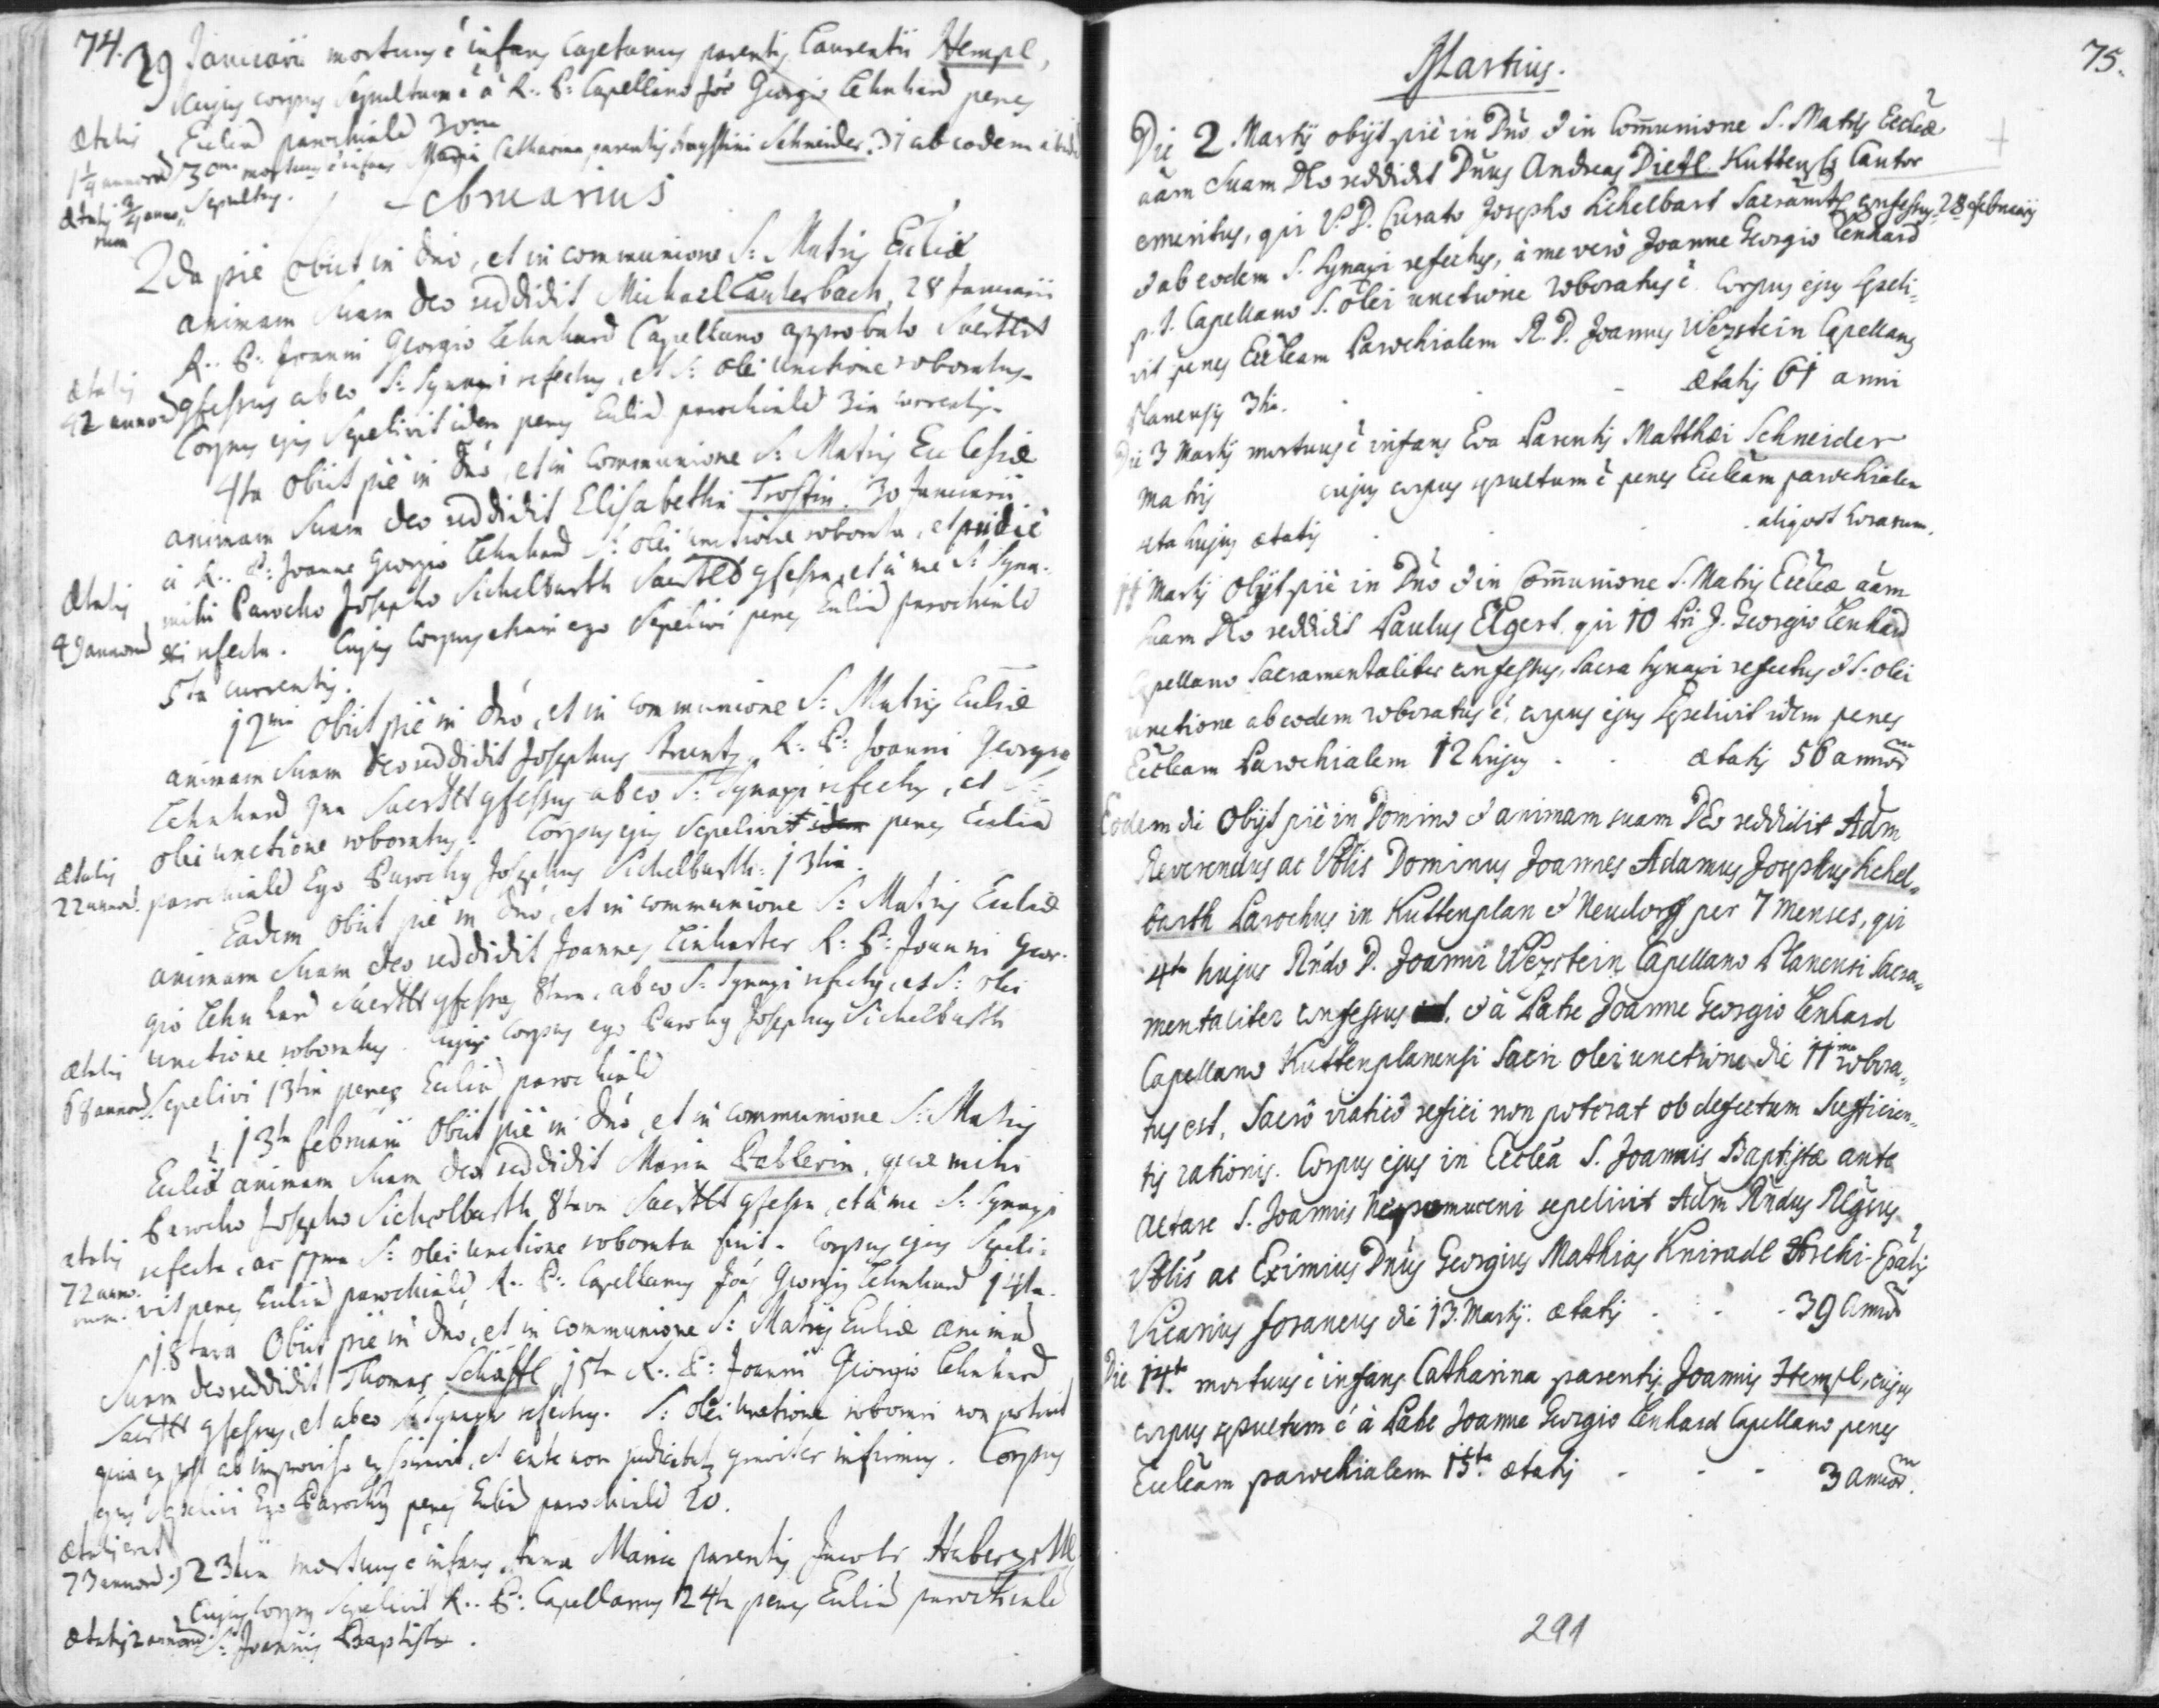 74.
29 Januarii mortuus ē infans Cajetanus parentis Laurentii Hempl,
cujus corpus sepultum ē à R. P. Capellano Joē Georgio Lehnhard penes
Ætatis Eccliā parochialē 30ma
1 1/4 annorū 30ma mortuus ē infans Maria Catharina parentis Schneider. 31 ab eodem
Ætatis 3/4 anno, sepultus.
rum
Februarius
2da pie obiit in Dno, et in communione S: Matris Eccliæ
animam suam deo reddidit Michael Lauterbach, 28 Januarii
R. P. Joanni Georgio Lehnhard Capellano approbato
ætatis
42 annorū gfessus ab eo S: Synaxi refectus, et S: olei unctione roboratus.
Corpus ejus sepelivit idem penes Eccliā parochialē 3tia currentis.
4ta obiit pie in Dno, et in communione S: Matris Ecclesiæ
animam suam deo reddidit Elisabetha Trostin. 30 Januarii
à R. P: Joanne Georgio Lehnhard S: olei unctione roborata, et pridie
Ætatis mihi Parocho Josepho Sichelbarth gfessa, et à me S: Syna-
49 annorū xi refecta. Cujus corpus etiam ego sepelivi penes Eccliā parochialē
5ta currentis.
12ma obiit pie in Dno, et in communione S: Matris Eccliæ
animam suam deo reddidit Josephus R: P: Joanni Georgio
Lehnhard gfessus ab eo S: Synaxi refectus, et S:
olei unctione roboratus. Corpus ejus sepelivit penes Eccliā
ætatis
22 annorū. parochialē Ego Parochus Josephus Sichelbarth. 13tia.
Eadem obiit pie in Dno, et in communione S: Matris Eccliæ
animam suam deo reddidit Joannes Linharter R: P: Joanni Geor-
gio Lehnhard gfessus 8tava, ab eo S: Synaxi refectus, et S: olei
ætatis unctione roboratus. Cujus corpus ego Parochus Josephus Sichelbarth
68 annorū. sepelivi 13tia penes Eccliā parochialē
13ta februarii obiit pie in Dno, et in communione S: Matris
Eccliæ animam suam deo reddidit Maria Pablerin, quæ mihi
Parocho Josepho Sichelbarth 8tava gfessa, et à me S: Synaxi
ætatis refecta, ac S: olei unctione roborata fuit. Corpus ejus sepeli-
72 anno-
rum. vit penes Eccliā parochialē R. P: Capellanus Joēs Georgius Lehnhard 14ta.
18tava obiit pie in Dno, et in communione S: Matris Eccliæ animā
suam deo reddidit Thomas Schäffl, 15ta R. P: Joanni Georgio Lehnhard
gfessus, et ab eo S: Synaxi refectus. S: olei unctione roborari non potuit
quia ex post ab improviso expiravit, et ante non judicabatur graviter infirmus. Corpus
ejus sepelivi Ego Parochus penes Eccliā parochialē 20.
Ætatis erat
73 annorū. 23tia mortuus ē infans Anna Maria parentis Jacobi
cujus corpus sepelivit R. P: Capellanus 24ta penes Eccliā parochialē
ætatis 2 annorū. S: Joannis Baptistæ.
75.
Martius.
Die 2 Martij obijt piè in Dno & in Communione S. Matris Eccleæ
aām suam Deo reddidit Dnus Andreas Dietl Kuttensis Cantor
emeritus, qui V. D. Curato Josepho Sichelbart Sacramtr confessus 28 februarij
& ab eodem S. Synaxi refectus, à me verò Joanne Georgio Lenhard
p. t. Capellano S. olei unctione roboratus ē. Corpus ejus sepeli-
vit penes Eccleam Parochialem R. D. Joannes Wezstein Capellanus
Planensis 3tia. . . - ætatis 61 anni
Die 3 Martij mortuus ē infans Eva Parentis Matthæi Schneider
Matris cujus corpus sepultum ē penes Eccleam parochialem
4ta hujus ætatis . . . aliquot horarum.
11 Martij obijt piè in Dno & in Communione S. Matris Eccleæ aām
suam Deo reddidit Paulus Elgert, qui 10 Pri J. Georgio Lenhard
Capellano Sacramentaliter confessus, Sacra Synaxi refectus & S. olei
unctione ab eodem roboratus ē, corpus ejus sepelivit idem penes
Eccleam Parochialem 12 hujus . . ætatis 56 annorum
Eodem die obijt piè in Domino & animam suam DEo reddidit Adm
Reverendus ac Nblis Dominus Joannes Adamus Josephus Sichel-
barth Parochus in Kuttenplan & Neudorff per 7 menses, qui
4ta hujus Rndo D. Joanni Wezstein Capellano Planensi Sacra-
mentaliter confessus, & à Patre Joanne Georgio Lenhard
Capellano Kuttenplanensi Sacri olei unctione die 11ma robora-
tus est, Sacrô viaticô refici non poterat ob defectum sufficien-
tis rationis. Corpus ejus in Ecclea S. Joannis Baptistæ ante
altare S. Joannis Nepomuceni sepelivit Adm Rndus Rlgsus
Nblis ac Eximius Dnus Georgius Mathias Kniradl Archi-Epālis
Vicarius foraneus die 13. Martij. ætatis . . . 39 annor
Die 14ta mortuus ē infans Catharina parentis Joannis Hempl, cujus
corpus sepultum ē à Patre Joanne Georgio Lenhard Capellano penes
Eccleam parochialem 15ta ætatis - - - 3 annor.
291